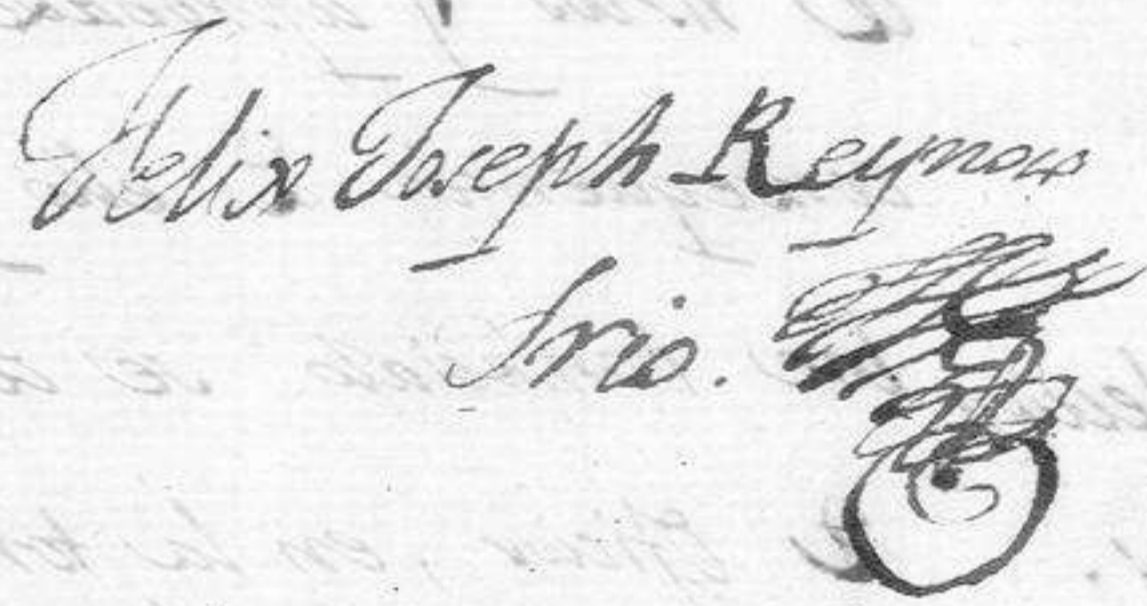 Felix Joseph Reynoso
Srio.